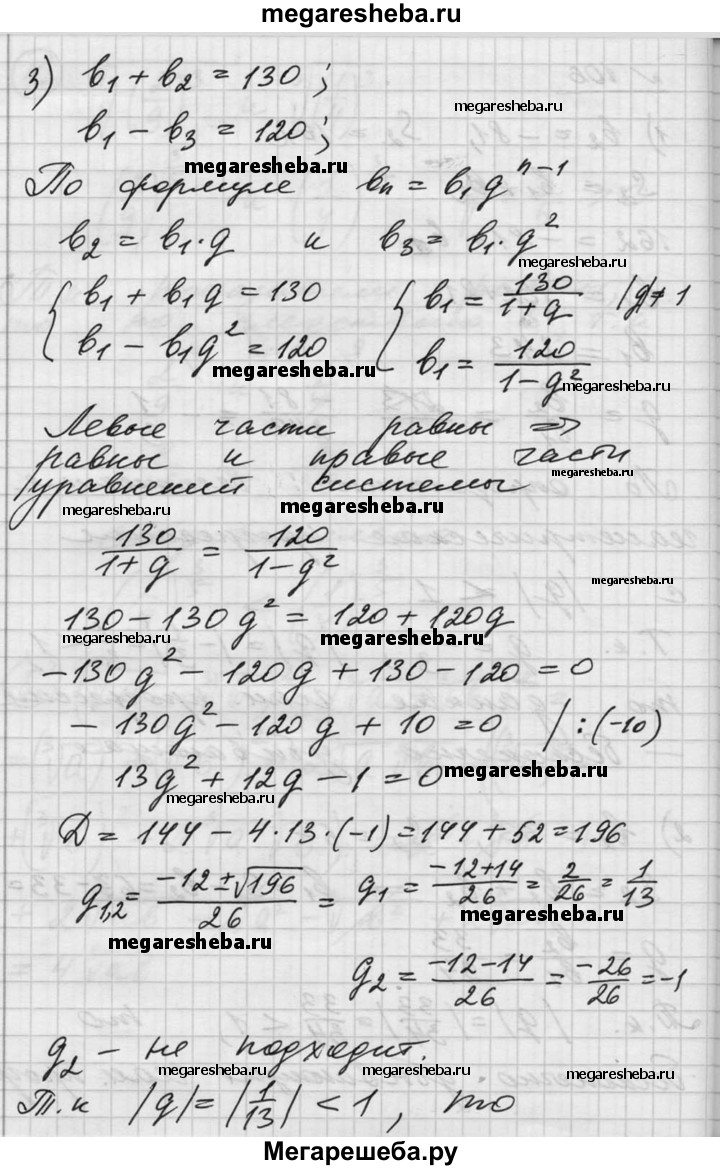 megaresheba.ru
3) b₁ + b₂ = 130;
megaresheba.ru
b₁ − b₃ = 120;
megaresheba.ru
По формуле bₙ = b₁qⁿ⁻¹
b₂ = b₁·q и b₃ = b₁·q²
megaresheba.ru
{ b₁ + b₁q = 130 { b₁ = 130/(1+q) |q|≠1
b₁ − b₁q² = 120 b₁ = 120/(1−q²)
megaresheba.ru
megaresheba.ru
Левые части равны =>
равны и правые части
megaresheba.ru
уравнений системы
megaresheba.ru
megaresheba.ru
130/(1+q) = 120/(1−q²)
megaresheba.ru
130 − 130q² = 120 + 120q
megaresheba.ru
megaresheba.ru
−130q² − 120q + 130 − 120 = 0
− 130q² − 120q + 10 = 0 /:(−10)
13q² + 12q − 1 = 0
megaresheba.ru
megaresheba.ru
D = 144 − 4·13·(−1) = 144 + 52 = 196
q₁,₂ = (−12 ± √196)/26 = q₁ = (−12+14)/26 = 2/26 = 1/13
megaresheba.ru
megaresheba.ru
q₂ = (−12−14)/26 = −26/26 = −1
q₂ − не подходит.
megaresheba.ru
Т.к |q| = |1/13| < 1, то
Мегарешеба.ру